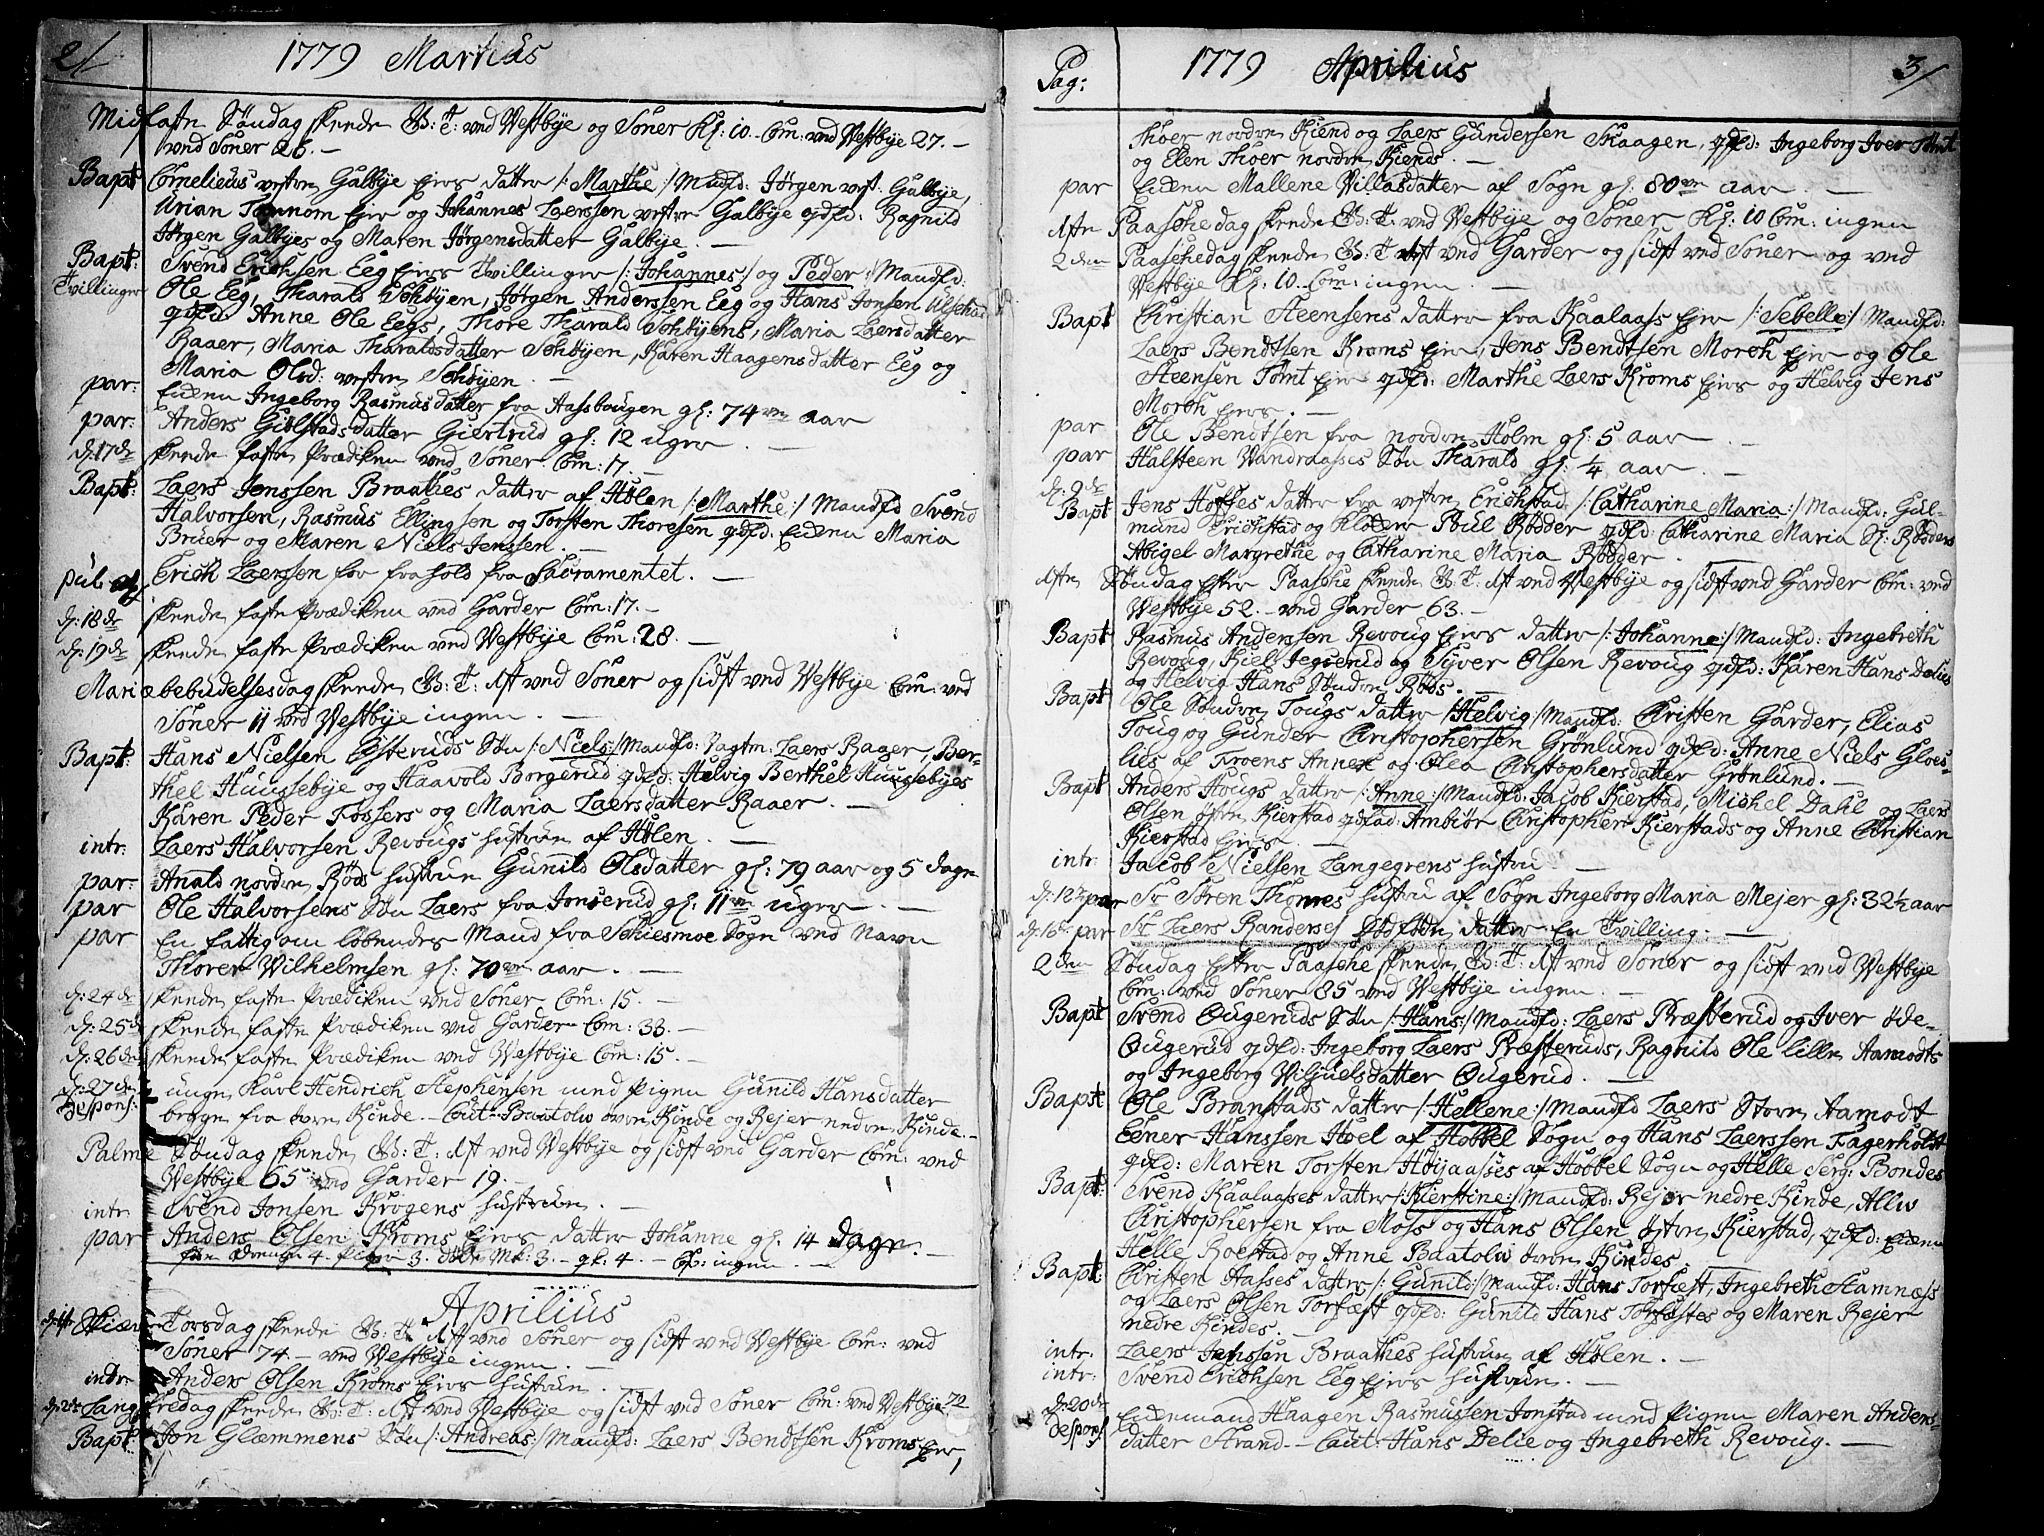 2/
1779 Martius
Midfaste Søndag skeede G: T: ved Vestbye og Soner Kl: 10 Com: ved Vestbye 27. –
ved Soner 26. –
Bapt Cornelieus vestre Galbye Eiers datter /: Marthe :/ Maudfd: Jørgen vest: Galbye,
Urian Tomnom Eier og Johannes Laerssen vestre Galbye qdfd: Ragnild
Jørgen Galbyes og Maren Jørgensdatter Galbye. –
Bapt: Svend Erichsen Eeg Eiers Tvillinger /: Johannes :/ og Peder :/ Maudfd:
Tvillinger Ole Eeg, Tharald Sohbyen, Jørgen Anderssen Eeg og Hans Jonsen
qdfd: Anne Ole Eegs, Thore Tharald Sohbyens, Maria Laersdatter
Raaer, Maria Tharaldsdatter Sohbyen, Karen Haagensdatter Eeg og
Maria Olsd: vestre Sohbyen. –
par: Enken Ingeborg Rasmusdatter fra Aassbougen gl: 74 aar
par: Anders Gislstads datter Giertrud gl: 12 uger –
d: 17de skeede faste Prædiken ved Soner Com: 17. –
Bapt: Laers Jenssen Braathes datter af Hølen /: Marthe :/ Maudfd Svend
Halvorsen, Rasmus Ellingsen og Torsten Thoresen qdfd: Enken Maria
Bruer og Maren Niels Jenssen. –
pub: Erich Laerssen for frahold fra Sacramentet. –
d: 18de skeede faste Prædiken ved Garder Com: 17. –
d: 19de skeede faste Prædiken ved Vestbye Com: 28. –
Mariæbebudelsesdag skeede G: T: først ved Soner og sidst ved Vestbye Com: ved
Soner 11 ved Vestbye ingen. –
Bapt: Hans Nielsen Østeruds Søn /: Niels :/ Maudfd: Vagtm: Laers Rager, Ber-
thel Hungsebye og Haavold Borgerud qdfd: Helvig Berthel Hungsebyes
Karen Peder Fossers og Maria Laersdatter Raaer. –
intr: Laers Halvorsen Revougs hustrue af Hølen. –
par: Anald nordre Røds hustrue Gunild Olsdatter gl: 79 aar og 5 dage
par Ole Halvorsens Søn Laers fra Jonserud gl: 11 uger –
par En fattig om løbendes Mand fra Schiesmoe Sogn ved Navn
Thorer Wilhelmsen gl: 70 aar. –
d: 24de skeede faste Prædiken ved Soner Com: 15. –
d: 25de skeede faste Prædiken ved Garder Com: 33. –
d: 26de skeede faste Prædiken ved Vestbye Com: 15. –
d: 27de unge Karl Hendrich Stephensen med Pigen Gunild Hansdatter
Despons: begge fra øvre Kinde – Caut: Baatolv øvre Kinde og Rejer nedre Kinde –
Palme Søndag skeede G: T: først ved Vestbye og sidst ved Garder Com: ved
Vestbye 65 ved Garder 19. –
intr Svend Jonsen Krogens hustrue. –
par Anders Olsen Kroms Eiers datter Johanne gl: 14 dage. –
4 Piger 3. døde Mk: 3. – qk: 4. – Cop: ingen. –
Aprilius
d: 1ste Skiær Torsdag skeede G: T: først ved Soner og sidst ved Vestbye Com: ved
Soner 74. – ved Vestbye ingen. –
intr: Anders Olsen Kroms Eiers hustrue. –
d: 2de Langfredag skeede G: T: først ved Vestbye og sidst ved Soner Com: ved Vestbye 72
Bapt: Jon Glæmmens Søn /: Andreas :/ Maudfd: Laers Bendtsen Kroms Eier,
Pag:
1779 Aprilius
3/
Thoer nordre Kiend og Laers Gundersen Skaagen, qdfd: Ingeborg Iver Tømt
og Elen Thoer nordre Kiends. –
par Enken Mallene Villasdatter af Sogn gl: 80 aar. –
1ste Paaschedag skeede G: T: ved Vestbye og Soner Kl: 10 Com: ingen
2den Paaschedag skeede G: T: først ved Garder og sidst ved Soner og ved
Vestbye Kl: 10. Com: ingen. –
Bapt Christian Steensens datter fra Raalaass Eier /: Sebelle :/ Maudfd:
Laers Bendtsen Kroms Eier, Jens Bendtsen Morch Eier og Ole
Steensen Tømt Eier qdfd: Marthe Laers Kroms Eiers og Helvig Jens
Morch Eiers. –
par Ole Bendtsen fra nordre Holm gl: 5 aar –
par Halsteen Vandraasses Søn Tharald gl: 1/4 aar. –
d: 9de
Bapt Jens Hoffes datter fra vestre Erichstad /: Catharine Maria :/ Maudfd: Gul-
mund Erichstad og Klocker Poul Rødder qdfd: Catharine Maria Sl: Rødders
Abigel Margrethe og Catharine Maria Rødder. –
1ste Søndag efter Paasche skeede G: T: først ved Vestbye og sidst ved Garder Com: ved
Vestbye 52. – ved Garder 63. –
Bapt Rasmus Anderssen Revoug Eiers datter /: Johanne :/ Maudfd: Ingebreth
Revoug, Kiel Jegserud og Syver Olsen Revoug qdfd: Karen Hans Delies
og Helvig Hans Søndre Røds. –
Bapt Ole Søndre Tougs datter /: Helvig :/ Maudfd: Christen Garder, Elias
Toug og Gunder Christophersen Grønlund qdfd: Anne Niels Gloes-
lies af Kroens Annex og Olea Christophersdatter Grønlund. –
Bapt Anders Hougs datter /: Anne :/ Maudfd: Jacob Kierstad, Michel Dahl og Laers
Olsen østre Kierstad qdfd: Ambiør Christopher Kierstads og Anne Christian
Kierstad Eiers. –
intr: Jacob Nielsen Langegrens hustru. –
d: 12te par Sr Søren Thomes hustru af Sogn Ingeborg Maria Mejer gl: 32 1/2 aar
d: 16de par Sr Laers Randerses Dødfødte datter En Tvilling. –
2den Søndag efter Paasche skeede G: T: først ved Soner og sidst ved Vestbye
Com: ved Soner 85 ved Vestbye ingen. –
Bapt Svend Ougeruds Søn /: Hans :/ Maudfd: Laers Præsterud og Iver øde-
Ougerud qdfd: Ingeborg Laers Præsteruds, Ragnild Ole lille Aamodts
og Ingeborg Viljuelsdatter Ougerud. –
Bapt Ole Branstads datter /: Hellene :/ Maudfd Laers Store Aamodt
Eener Hanssen Hoel af Hobbel Sogn og Hans Laerssen Fagerholt
qdfd: Maren Torsten Høijaasses af Hobbel Sogn og Helle Serg: Bondes
Bapt: Svend Raalaasses datter /: Kierstine :/ Maudfd: Rejer nedre Kinde, Allv
Christophersen fra Moss og Hans Olsen østre Kierstad, qdfd: Enken
Helle Roestad og Anne Baatolv øvre Kindes. –
Bapt: Christen Aasses datter /: Gunild :/ Maudfd: Hans Torfæst, Ingebreth Stamnæss
og Laers Olsen Torfæst qdfd: Gunild Hans Torfæstes og Maren Rejer
nedre Kindes. –
intr. Laers Jenssen Braathes hustrue af Hølen. –
intr: Svend Erichsen Eeg Eiers hustrue. –
d: 20de Enkemand Haagen Rasmussen Jonstad med Pigen Maren Anders-
despons: datter Strand – Caut: Hans Delie og Ingebreth Revoug. –